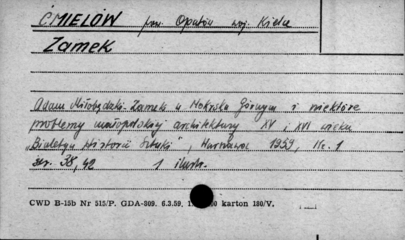 ĆMIELÓW pow. Opatów woj. Kielce
Zamek
Adam Miłobędzki. Zamek w Mokrsku Górnym i niektóre
problemy małopolskiej architektury XV i XVI wieku
"Biuletyn Historii Sztuki", Warszawa 1959, Nr. 1
str. 38, 42 1 ilustr.
CWD B-15b Nr 515/P. GDA-809. 6.3.59, karton 180/V.